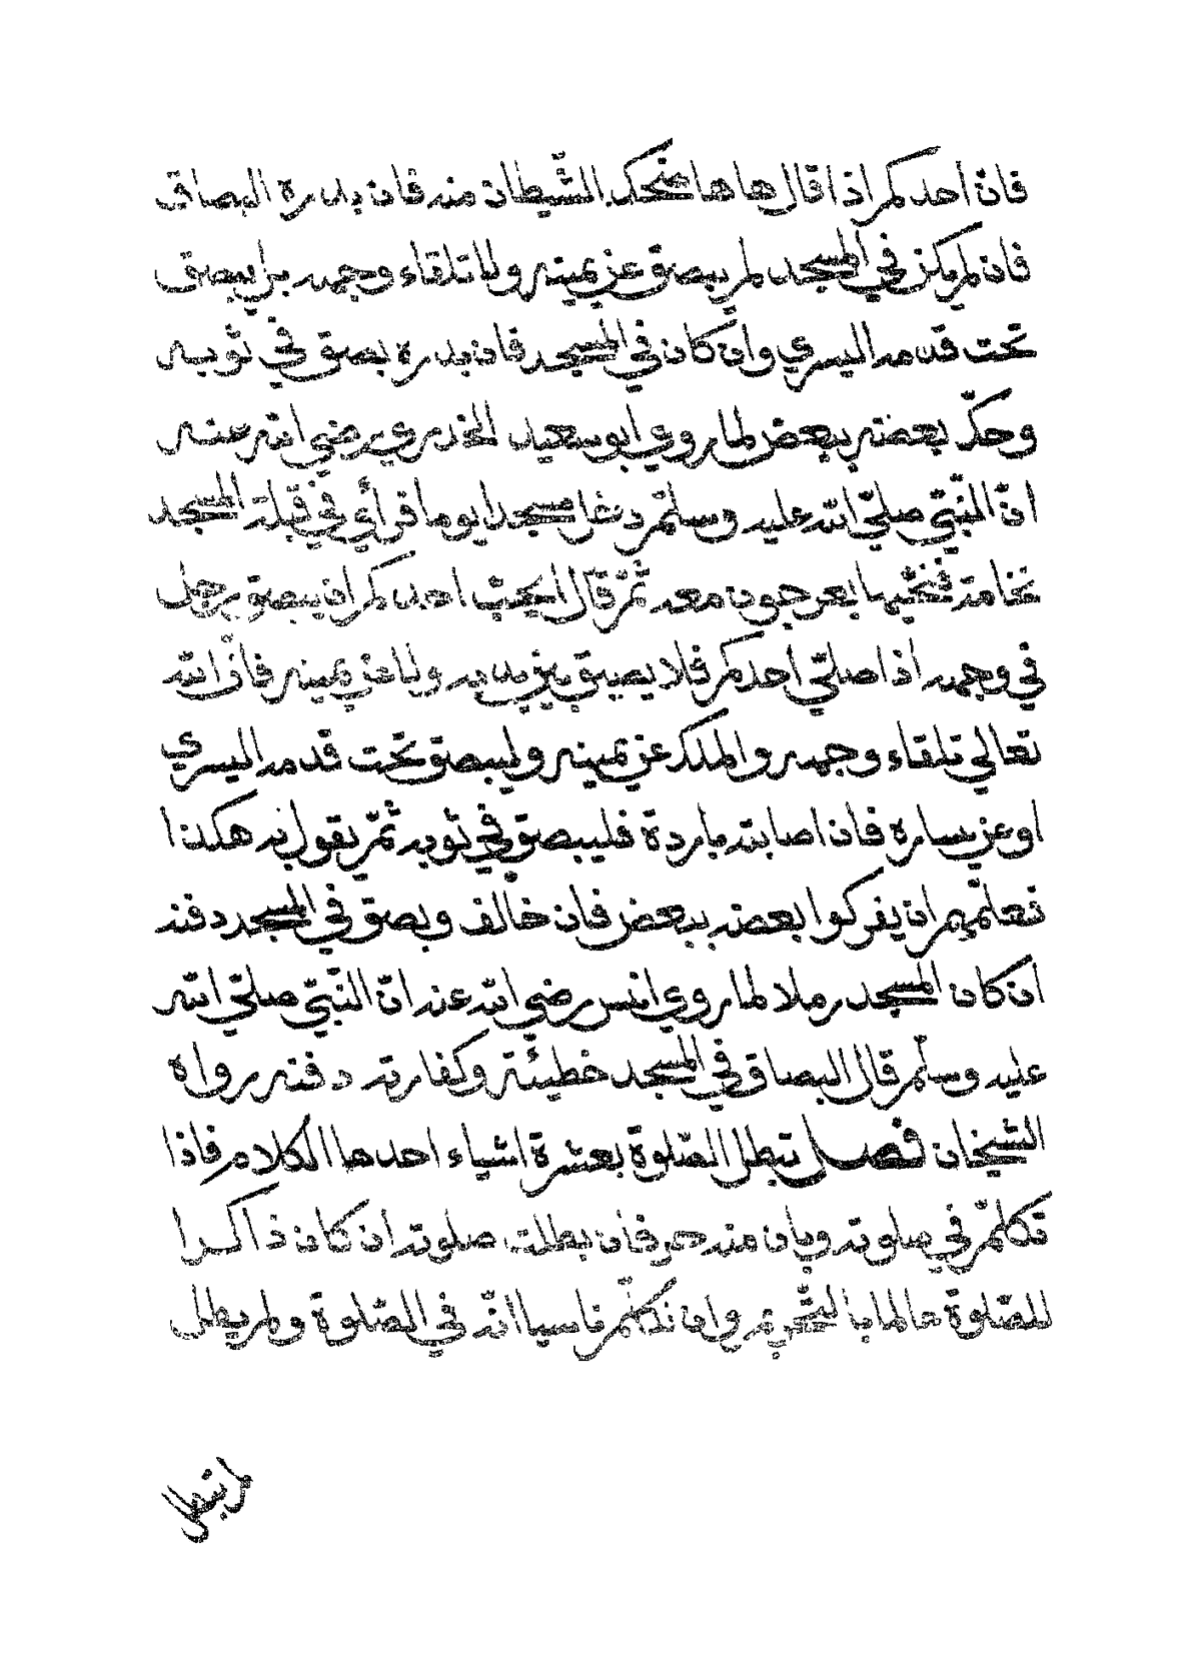 فانّ احدكم اذا قال ها ها ضحك الشّيطان منه فان بدره البصاق
فان لم يكن في المسجد لم يبصق عن يمينه ولا تلقاء وجهه بل يبصق
تحت قدمه اليسري وان كان في المسجد فان بدره بصق في ثوبه
وحكّ بعضه ببعض لما روي ابو سعيد الخدري رضي الله عنه
انّ النّبيّ صلّي الله عليه وسلّم دخل مسجدا يوما فرأي في قبلة المسجد
نخامة فحتّها بعرجون معه ثمّ قال ايحبّ احدكم ان يبصق رجل
في وجهه اذا صلّي احدكم فلا يبصق بين يديه ولا عن يمينه فانّ الله
تعالي تلقاء وجهه والملك عن يمينه وليبصق تحت قدمه اليسري
او عن يساره فان اصابته بادرة فليبصق في ثوبه ثمّ يقول به هكذا
فعلّمهم ان يفركوا بعضه ببعض فان خالف وبصق في المسجد دفنه
ان كان المسجد رملا لما روي انس رضي الله عنه انّ النّبيّ صلّي الله
عليه وسلّم قال البصاق في المسجد خطيئة وكفارته دفنه رواه
الشيخان فصل تبطل الصّلوة بعشرة اشياء احدها الكلام فاذا
تكلّم في صلوته وبان منه حرفان بطلت صلوته ان كان ذاكرا
للصّلوة عالما بالتّحريم وان تكلّم ناسيا انّه في الصّلوة ولم يطل